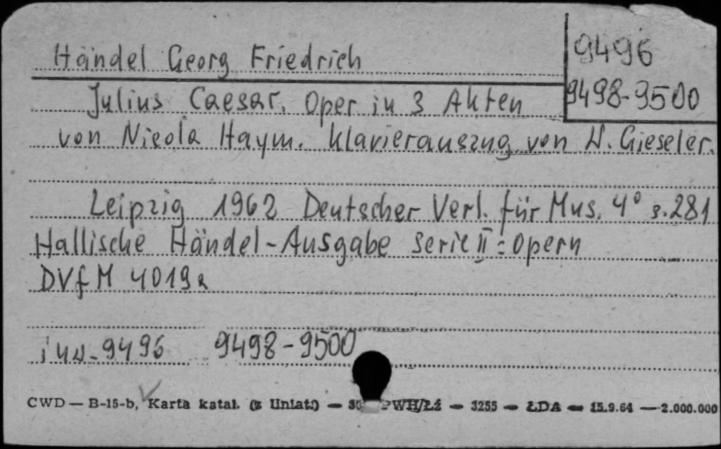 Händel Georg Friedrich
9496
9498-9500
Julius Caesar. Oper in 3 Akten
von Nicola Haym. Klavierauszug von W. Gieseler.
Leipzig 1962 Deutscher Verl. für Mus. 4° s. 281
Hallische Händel-Ausgabe Serie II: Opern
DVfM 4019a
inw. 9496 9498-9500
CWD — B-15-b, Karta katal. (z Uniat.) — PWH/Łź — 3255 — ŁDA — 15.9.64 — 2.000.000